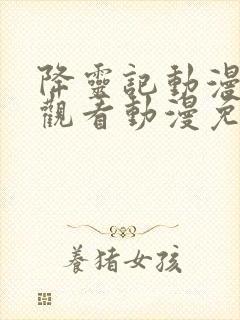 降靈記動漫
觀看動漫免
養猪女孩